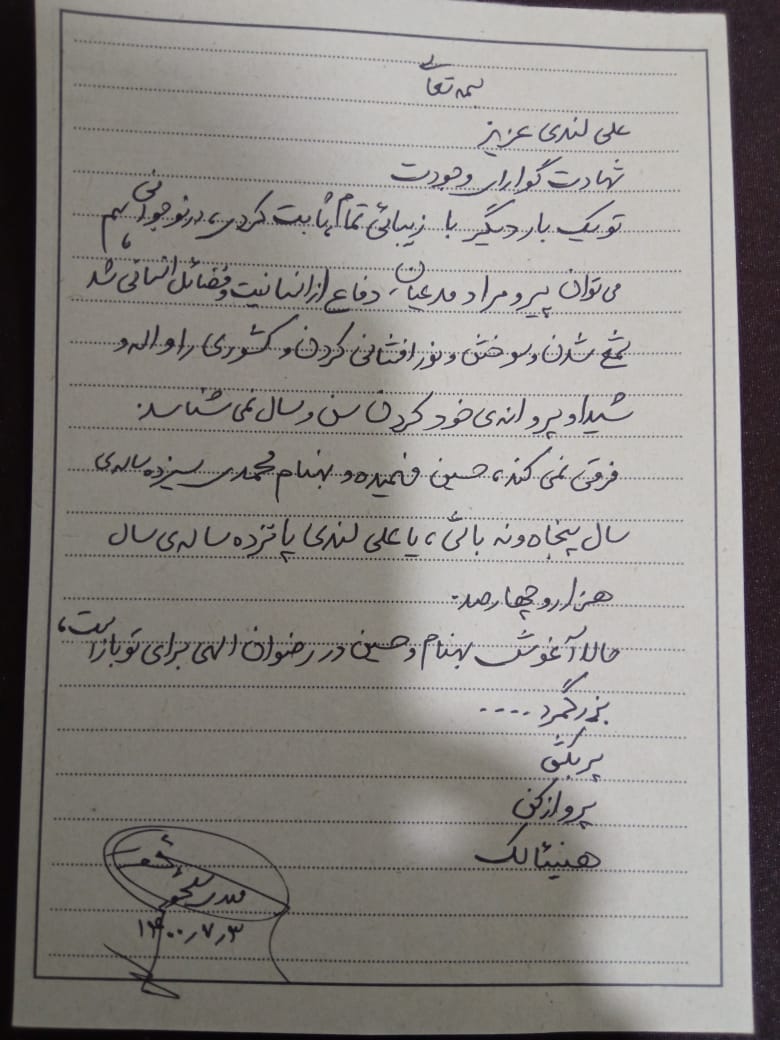 بسمه تعالی
علی لندی عزیز
شهادت گوارای وجودت
تو یک بار دیگر با زیبائی تمام ثابت کردی، در نوجوانی هم
می‌توان پیر و مراد مدعیان، دفاع از انسانیت و فضائل انسانی شد
شمع شدن و سوختن و نورافشانی کردن و کشوری را واله و
شیدا و پروانه‌ی خود کردن سن و سال نمی‌شناسد.
فرقی نمی‌کند، حسین فهمیده و بهنام محمدی سیزده ساله‌ی
سال پنجاه و نه باشی، یا علی لندی پانزده ساله‌ی سال
هزار و چهارصد.
حالا آغوش بهنام و حسین در رضوان الهی برای تو باز است،
بزرگمرد ....
پر بکش
پرواز کن
هنیئا لک
۱۴۰۰٫۷٫۳